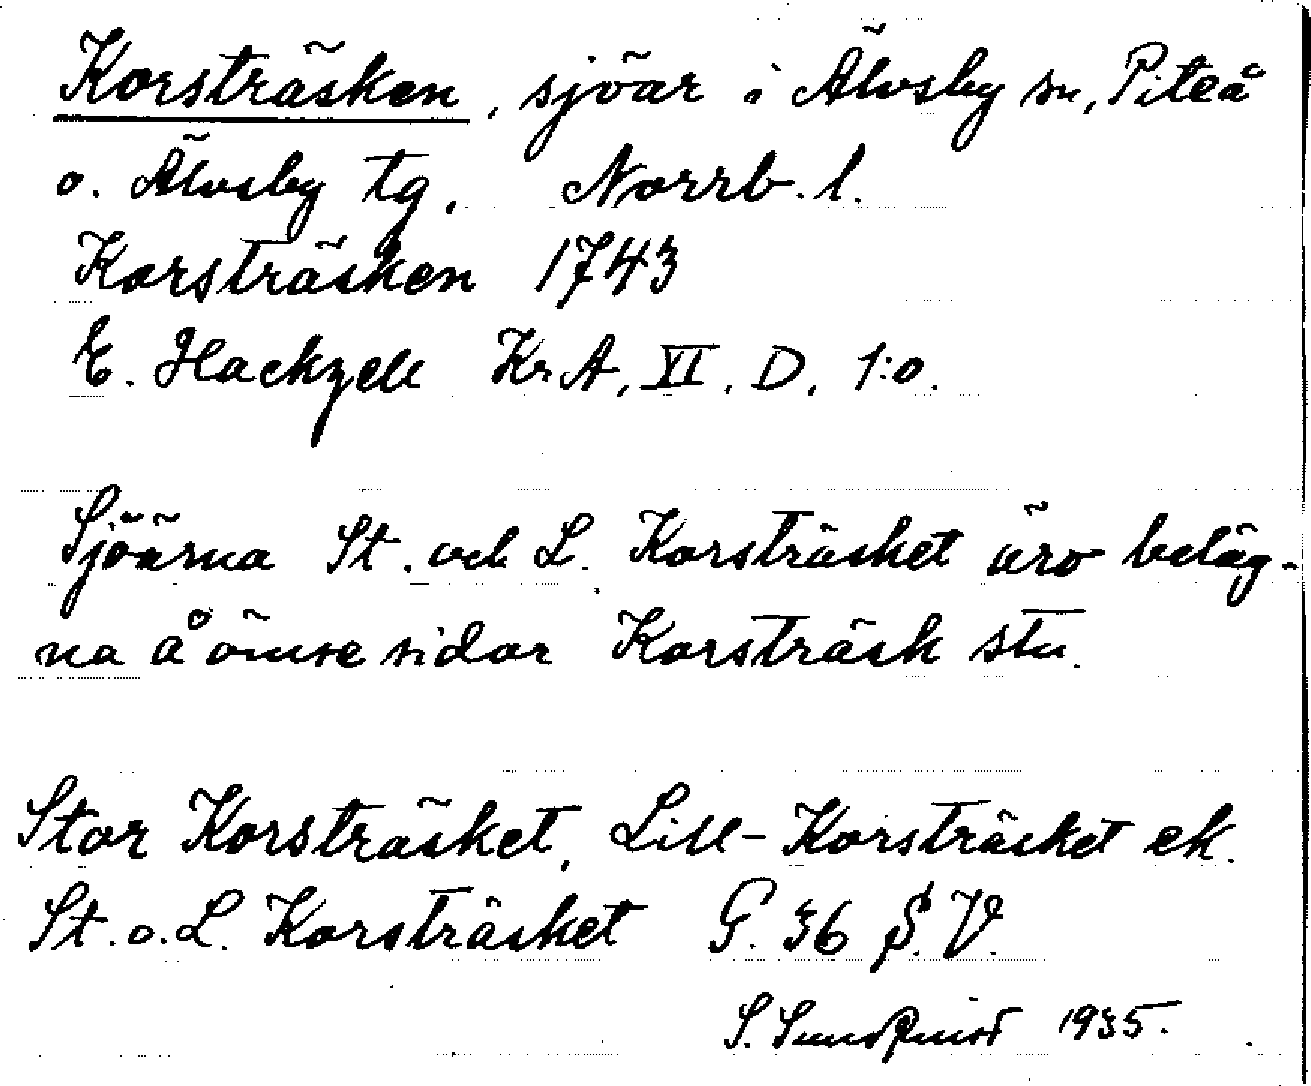 Korsträsken, sjöar i Älvsby sn, Piteå
o. Älvsby tg. Norrb. l.
Korsträsken 1743
E. Hackzell Kr A, VI. D. 1:o.
Sjöarna St. och L. Korsträsket äro beläg-
na å ömse sidor Korsträsk stn.
Stor Korsträsket, Lill-Korsträsket ek.
St. o. L. Korsträsket G. 36 S. V.
S. Sundqvist 1935.